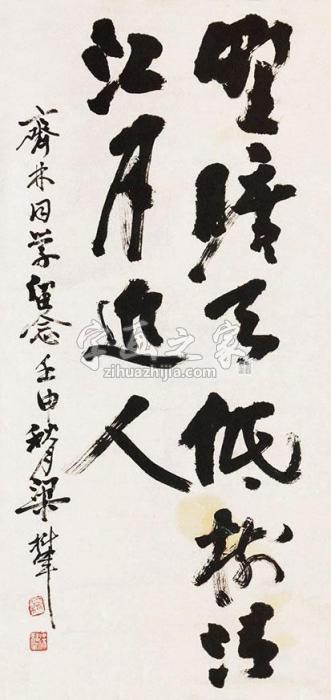 野曠天低樹清
江月近人
齊木同学留念 壬申秋月 梁
字画之家
zihuazhijia.com